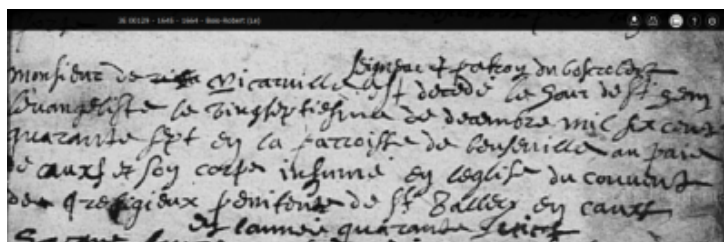 3E 00129 - 1645 - 1664 - Bois-Robert (Le)
seigneur et patron du boscrobert
monsieur de Vicarville est decedé le Jour de St Jean
levangeliste le vingtseptiesme de decembre mil six cens
quarante sept en la parroisse de benseville au paie
de caux et son corps inhumé en leglise du couvent
des religieux penitens de St Vallery en caux
et lannee quarante